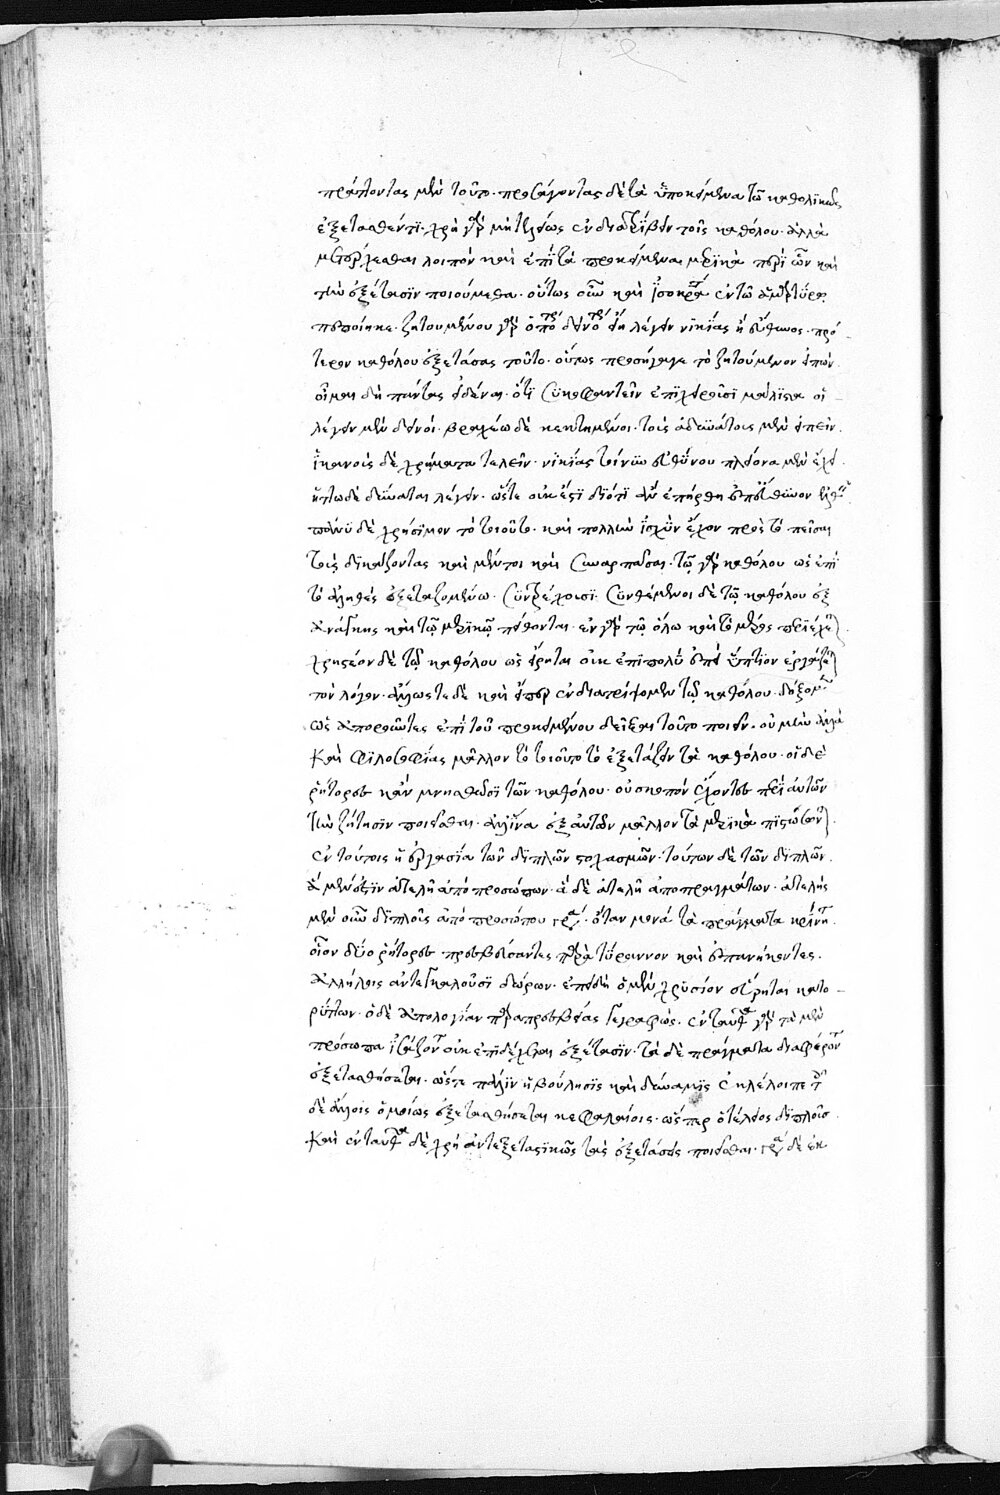 πράττοντας μὲν τοῦτο· προσάγοντας δὲ τὰ ὑποκείμενα τῶ καθολικῶς
ἐξετασθέντι· χρὴ γὰρ μὴ τελείως ἐνδιατρίβειν τοῖς καθόλου· ἀλλὰ
μετέρχεσθαι λοιπὸν καὶ ἐπὶ τὰ προκείμενα μερικὰ περὶ ὧν καὶ
τὴν ἐξέτασιν ποιούμεθα· οὕτως οὖν καὶ ἰσοκράτης ἐν τῶ ἀμαρτύρω
πεποίηκε· ζητουμένου γὰρ ὁπότερος δεινότερος ἦν λέγειν νικίας ἢ εὔθυνος· πρό
τερον καθόλου ἐξετάσας τοῦτο· οὕτως προσήγαγε τὸ ζητούμενον εἰπών·
οἶμαι δὴ πάντας εἰδέναι· ὅτι συκοφαντεῖν ἐπιχειροῦσι μάλιστα οἱ
λέγειν μὲν δεινοί· βραχέω δὲ κεκτημένοι· τοῖς ἀδυνάτοις μὲν εἰπεῖν·
ἱκανοῖς δὲ χρήματα τελεῖν· νικίας τοίνυν εὐθύνου πλείονα μὲν ἔχει·
ἥττω δὲ δύναται λέγειν· ὥστε οὐκ ἔστι διότι ἂν ἐπήρθη ἐπ' εὔθυνον ἐλθεῖν
πάνυ δὲ χρήσιμον τὸ τοιοῦτο· καὶ πολλὴν ἰσχὺν ἔχον πρὸς τὸ πεῖσαι
τοὺς δικάζοντας καὶ μέντοι καὶ συναρπάσαι· τῶ γὰρ καθόλου ὡς ἐπὶ
τὸ ἀληθὲς ἐξεταζομένω· συντρέχουσι· συνθέμενοι δὲ τῶ καθόλου ἐξ
ἀνάγκης καὶ τῶ μερικῶ πείθονται· ἐν γὰρ τῶ ὅλω καὶ τὸ μέρος περιέχεται
χρηστέον δὲ τῶ καθόλου ὡς εἴρηται οὐκ ἐπιπολὺ ἐπεὶ ὕπτιον ἐργάζεται
τὸν λόγον· ἄλλως τε δὲ καὶ εἴπερ ἐνδιατρίψομεν τῶ καθόλου· δόξομεν
ὡς ἀποροῦντες ἐπὶ τοῦ προκειμένου δεῖξαι τοῦτο ποιεῖν· οὐ μὴν ἀλλὰ
καὶ φιλοσοφίας μᾶλλον τὸ τοιοῦτο τὸ ἐξετάζειν τὰ καθόλου· οἱ δὲ
ῥήτορες κἂν μνησθῶσι τῶν καθόλου· οὐ σκοπὸν ἔχοντες περὶ αὐτῶν
τὴν ζήτησιν ποιεῖσθαι· ἀλλ' ἵνα ἐξ αὐτῶν μᾶλλον τὰ μερικὰ πιστώσωνται
ἐν τούτοις ἡ ἐργασία τῶν διπλῶν στοχασμῶν· τούτων δὲ τῶν διπλῶν·
ἃ μέν ἐστιν ἀτελῆ ἀπὸ προσώπων· ἃ δὲ ἀτελῆ ἀπὸ πραγμάτων· ἀτελὴς
μὲν οὖν διπλοῦς ἀπὸ προσώπου ἐστίν· ὅταν μόνα τὰ πράγματα κρίνηται
οἷον δύο ῥήτορες πρεσβεύσαντες παρὰ τύραννον καὶ ἐπανήκοντες·
ἀλλήλοις ἀντεγκαλοῦσι δώρων· ἐπειδὴ ὁ μὲν χρυσίον εὕρηται κατο
ρύττων· ὁ δὲ ἀπολογίαν παραπρεσβείας γεγραφώς· ἐνταῦθα γὰρ τὰ μὲν
πρόσωπα ἰσάζοντα οὐκ ἐπιδέχεται ἐξέτασιν· τὰ δὲ πράγματα διαφέροντα
ἐξετασθήσεται· ὥστε πάλιν ἡ βούλησις καὶ δύναμις ἐκλέλοιπε τοῖς
δὲ ἄλλοις ὁμοίως ἐξετασθήσεται κεφαλαίοις· ὥσπερ ὁ τέλειος διπλοῦς
καὶ ἐνταῦθα δὲ χρὴ ἀντεξεταστικῶς τὰς ἐξετάσεις ποιεῖσθαι· δὲ ἐκ